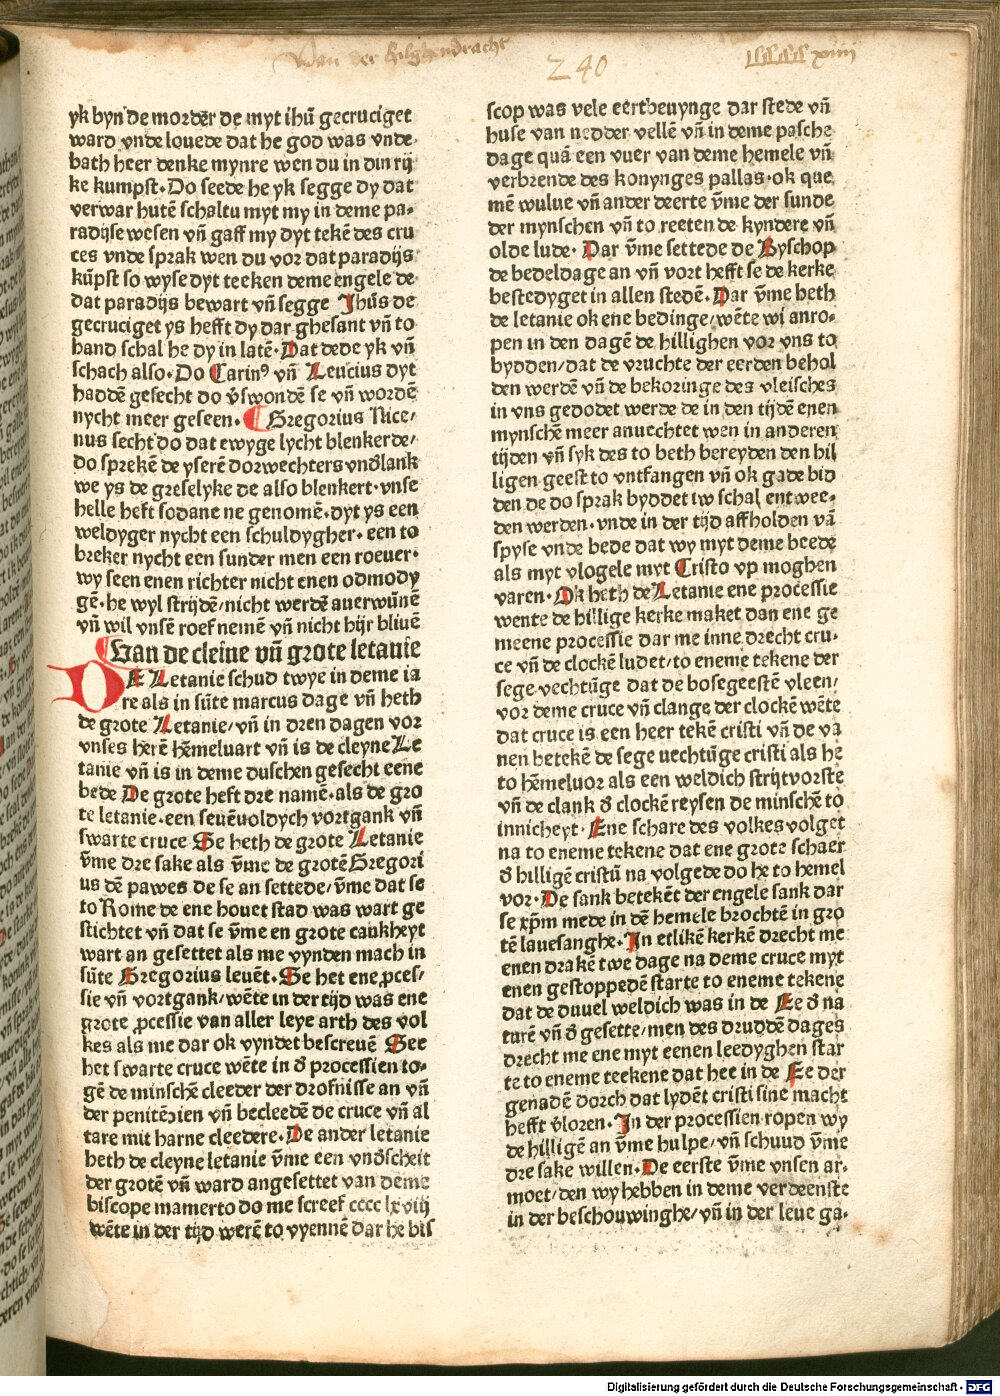 Van der hilghendracht
240
yk byn de mordēr de myt ihū gecruciget
ward vnde louede dat he god was vnde
bath heer denke mynre wen du in din rij
ke kumpst. Do seede he yk segge dy dat
verwar hutē schaltu myt my in deme pa-
radijse wesen vn̄ gaff my dyt tekē des cru
ces vnde sprak wen du vor dat paradijs
kūpst so wyse dyt teeken deme engele de
dat paradijs bewart vn̄ segge Jhūs de
gecruciget ys hefft dy dar ghesant vn̄ to
hand schal he dy in latē. Dat dede yk vn̄
schach also. Do Carinꝰ vn̄ Leucius dyt
haddē gesecht do v̄swondē se vn̄ wordē
nycht meer geseen. ¶ Gregorius Nice/
nus secht do dat ewyge lycht blenkerde/
do sprekē de yserē dorwechters vnd̄lank
we ys de greselyke de also blenkert. vnse
helle heft sodane ne genomē. dyt ys een
weldyger nycht een schuldygher. een to
breker nycht een sunder men een roeuer.
wy seen enen richter nicht enen odmody
gē. he wyl strijdē/nicht werdē auerwūnē
vn̄ wil vnsē roef nemē vn̄ nicht hijr bliuē
¶ Van de cleine vn̄ grote letanie
DE Letanie schud twye in deme ia
re als in sūte marcus dage vn̄ heth
de grote Letanie/vn̄ in dren dagen vor
vnses herē hēmeluart vn̄ is de cleyne Le
tanie vn̄ is in deme duschen gesecht eene
bede De grote heft dre namē. als de gro
te letanie. een seuēuoldych vortgank vn̄
swarte cruce Se heth de grote Letanie
v̄me dre sake als v̄me de grotē Gregori
us dē pawes de se an settede/v̄me dat se
to Rome de ene houet stad was wart ge
stichtet vn̄ dat se v̄me en grote cankheyt
wart an gesettet als me vynden mach in
sūte Gregorius leuēt. Se het ene ꝓces/
sie vn̄ vortgank/wēte in der tijd was ene
grote ꝓcessie van aller leye arth des vol
kes als me dar ok vyndet bescreuē See
het swarte cruce wēte in d̄ processien to-
gē de minschē cleeder der drofnisse an vn̄
der penitēcien vn̄ becleedē de cruce vn̄ al
tare mit harne cleedere. De ander letanie
heth de cleyne letanie v̄me een vnd̄scheit
der grotē vn̄ ward angesettet van deme
biscope mamerto do me screef cccc lxviij
wēte in der tijd werē to vyennē dar he bis
scop was vele eertbeuynge dar stede vn̄
huse van nedder vellē vn̄ in deme pasche
dage quā een vuer van deme hemele vn̄
verbrende des konynges pallas. ok que
mē wulue vn̄ ander deerte v̄me der sunde
der mynschen vn̄ to reeten de kyndere vn̄
olde lude. Dar v̄me settede de Byschop
de bedeldage an vn̄ vort hefft se de kerke
bestedyget in allen stedē. Dar v̄me heth
de letanie ok ene bedinge/wēte wi anro-
pen in den dagē de hillighen vor vns to
bydden/dat de vruchte der eerden behol
den werdē vn̄ de bekoringe des vleisches
in vns gedodet werde de in den tijdē enen
mynschē meer anuechtet wen in anderen
tijden vn̄ syk des to beth bereyden den hil
ligen geest to vntfangen vn̄ ok gade bid
den de do sprak byddet iw schal entwee-
den werden. vnde in der tijd affholden vā
spyse vnde bede dat wy myt deme beede
als myt vlogele myt Cristo vp moghen
varen. Ok heth de Letanie ene processie
wente de hillige kerke maket dan ene ge
meene processie dar me inne drecht cru-
ce vn̄ de clockē ludet/to eneme tekene der
sege vechtūge dat de bosegeestē vleen/
vor deme cruce vn̄ clange der clockē wēte
dat cruce is een heer tekē cristi vn̄ de va
nen betekē de sege uechtūge cristi als he
to hēmeluor als een weldich strijtvorste
vn̄ de clank d̄ clockē reysen de minschē to
innicheyt. Ene schare des volkes volget
na to eneme tekene dat ene grote schaer
d̄ hilligē cristū na volgede do he to hemel
vor. De sank betekēt der engele sank dar
se xp̄m mede in dē hemele brochtē in gro
tē lauesanghe. In etlikē kerkē drecht me
enen drakē twe dage na deme cruce myt
enen gestoppedē starte to eneme tekene
dat de duuel weldich was in de Ee d̄ na
turē vn̄ d̄ gesette/men des druddē dages
drecht me ene myt eenen leedyghen star
te to eneme teekene dat hee in de Ee der
genadē dorch dat lydēt cristi sine macht
hefft v̄loren. In der processien ropen wy
de hilligē an v̄me hulpe/vn̄ schuud v̄me
dre sake willen. De eerste v̄me vnsen ar-
moet/den wy hebben in deme verdeenste
in der beschouwinghe/vn̄ in der leue ga-
Digitalisierung gefördert durch die Deutsche Forschungsgemeinschaft - DFG